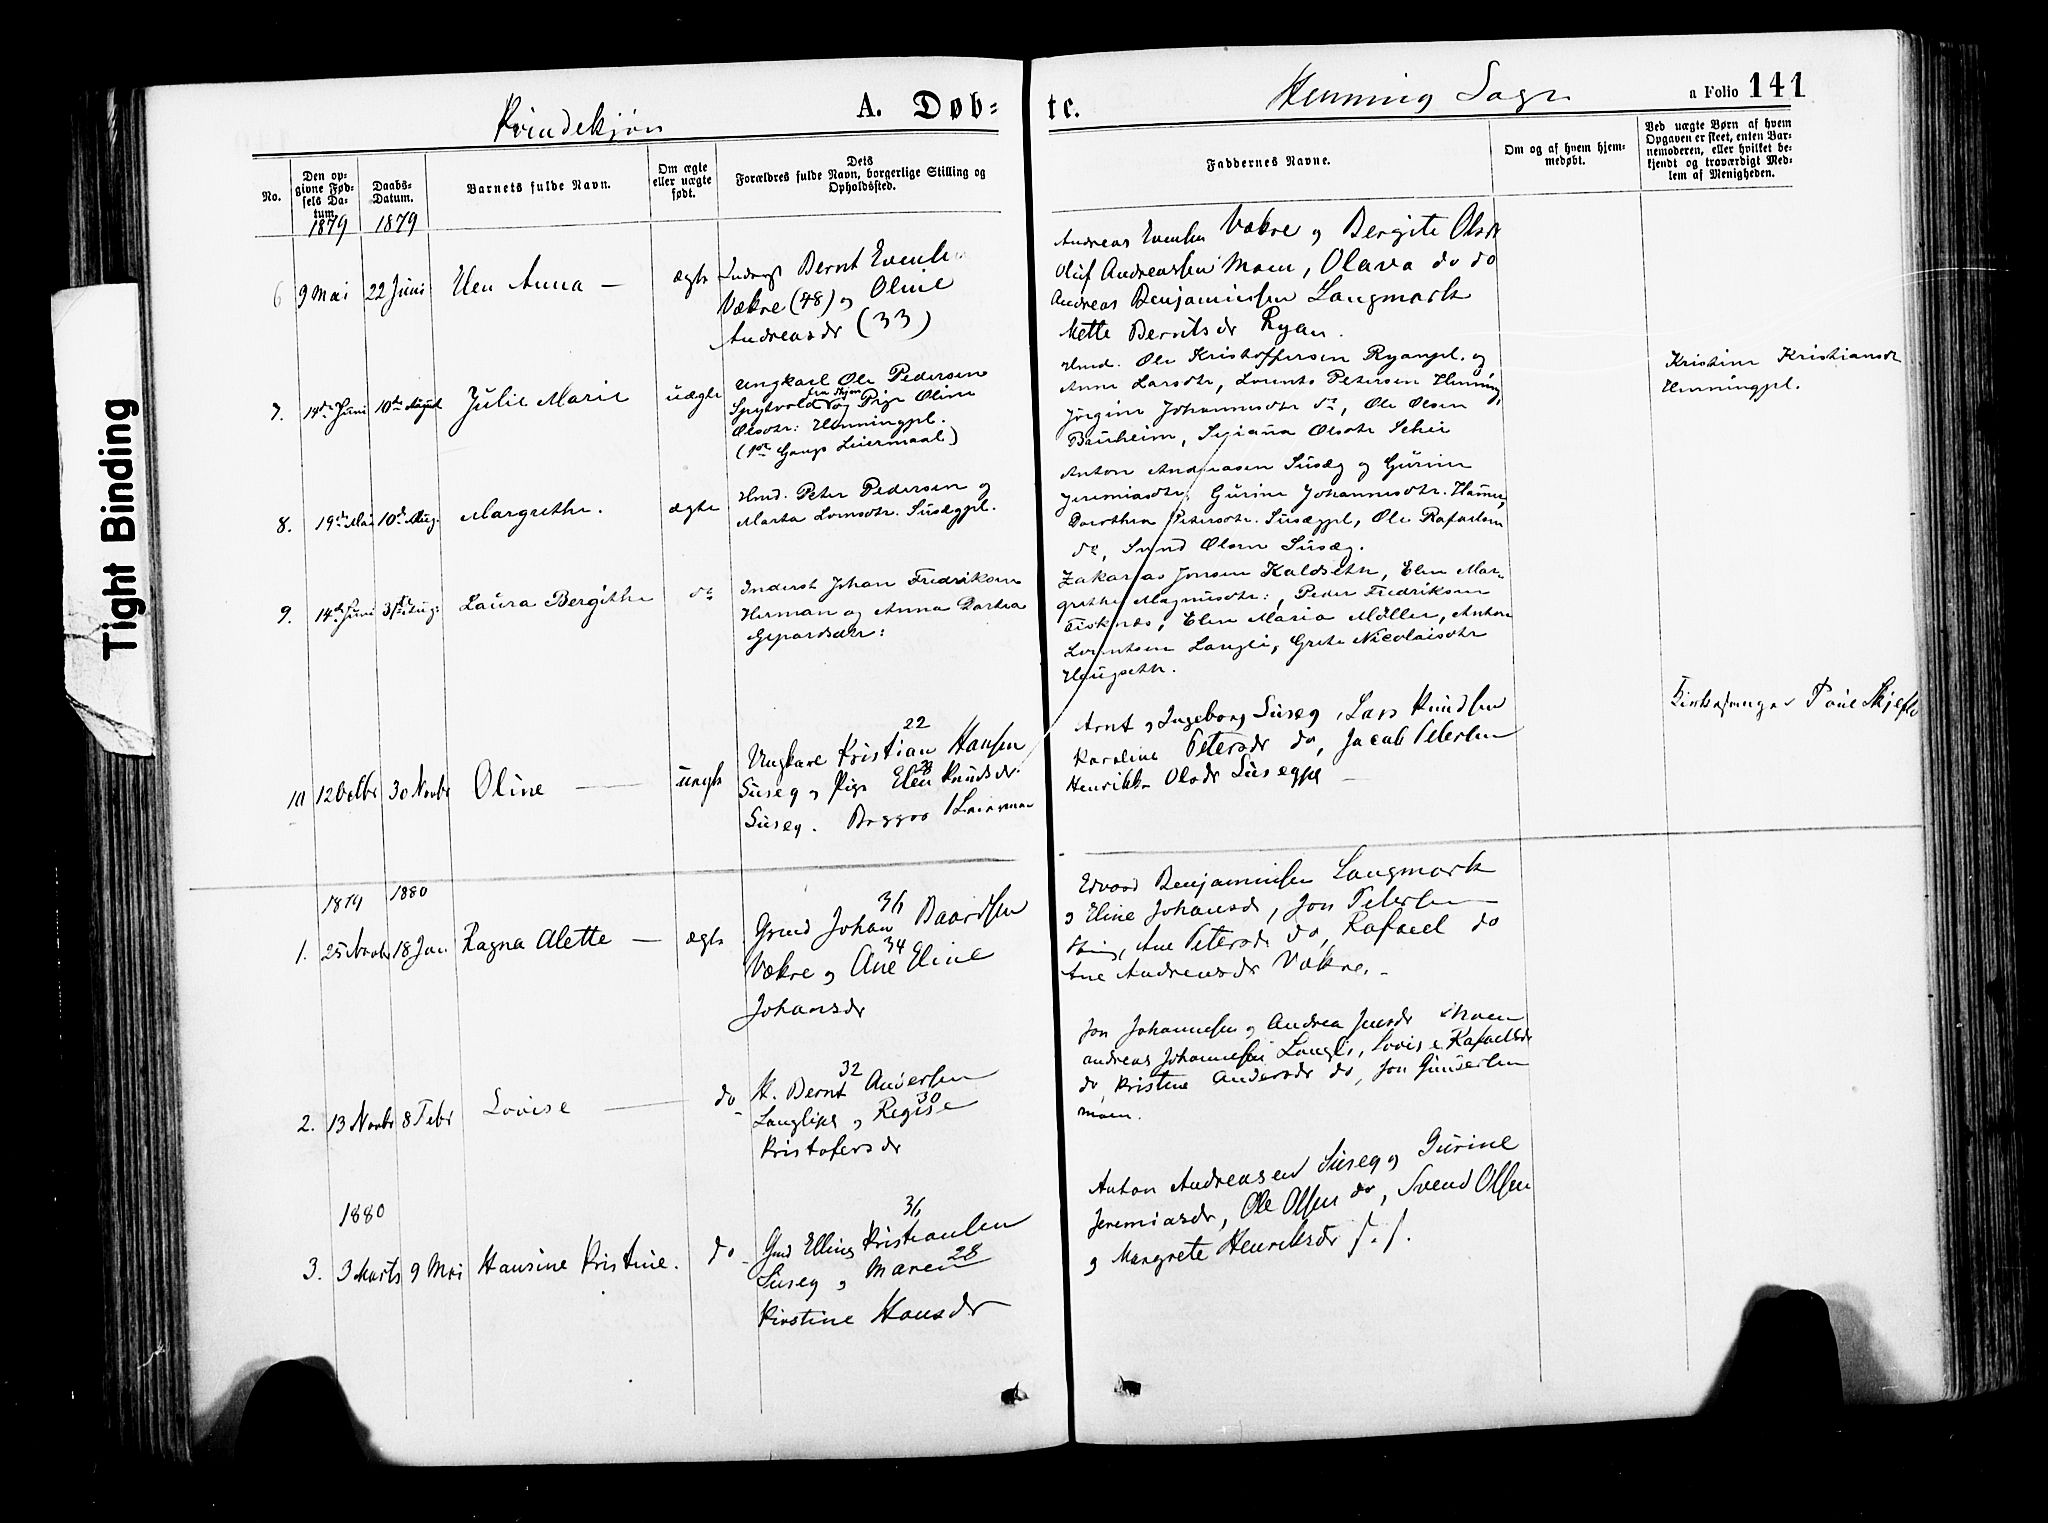 Tight Binding
Kvindekjøn
A. Døb=
tc.
Henning Sogn
a Folio 141
No.
Den op-
givne Fød-
sels Da-
tum.
Daabs-
Datum.
Barnets fulde Navn.
Om ægte
eller uægte
født.
Dets
Forældres fulde Navn, borgerlige Stilling og
Opholdssted.
Faddernes Navne.
Om og af hvem hjem-
medøbt.
Ved uægte Børn af hvem
Opgaven er skeet, enten Bar-
nemoderen, eller hvilket be-
kjendt og troværdigt Med-
lem af Menigheden.
1879
1879
6
9 Mai
22 Juni
Anna —
ægte
Bernt Evensen
Vækre (48) og Oline
Andreasdr (33)
Andreas Evensen Vækre og Bergite Olsdr
Oluf Andreassen Moen, Olava do do
Andreas Benjaminsen Langmark
Mette Berntsdr Ryan.
7.
14de Juni
10de August
Julie Marie
uægte
Ungkarl Ole Pedersen
og Pige Oline
Olsdtr: Henningpl.
(1ste Gangs Leiermaal)
Hmd. Ole Kristoffersen Ryanpl. og
Anne Larsdtr, Lorents Petersen Henning,
Jørgine Johannesdtr do, Ole Olsen
Olsdtr
Kristine Kristiansdtr
Henningpl.
8.
19de Mai
10de Aug.
Margrethe.
ægte
Hmd. Peter Pedersen og
Marta Susægpl.
Anton Andreasen Susæg og Gurine
Jeremiasdtr, Gurine Johannesdtr.
Dorothea Petersdtr. Susægpl, Ole Rafaelsen
do, Svend Olsen Susæg.
9.
14de Juni
31te Aug.
Laura Bergithe
do
Inderst Johan Fredriksen
Herman og Anna Dortea
Zakarias Jonsen Kaldseth, Elen Mar-
grethe Magnusdtr:, Peder Fredriksen
Fisknæs, Elen Maria Møller, Anton
Lorentsen Langli, Grete Nicolaisdtr
Haugseth.
10
12 Oktbr
30 Novbr
Oline —
uægte
22
Ungkarl Kristian Hansen
Suseg og Pige Elen Knudsdr
Suseg. Begges 1 Leiermaal
Arnt og Ingeborg Suseg, Lars Knudsen
Karoline Petersdr do, Jacob Petersen
Henrikke Olsdr Susegpl —
Kirkesanger
1879
1880
1.
25 Novbr
18 Jan
Ragna Alette —
ægte
36
Gmd Johan Baardsen
34
Vækre og Ane Eline
Johansdr
Edvard Benjaminsen Langmark
og Eline Johansdr, Jon Petersen
Ane Petersdr do, Rafael do
Ane Andreasdr Vækre. -
2.
13 Novbr
8 Febr
Lovise —
do
32
H. Bernt Andersen
30
Langlipl og Regise
Kristofersdr
Jon Johannesen og Andrea Jensdr Moen
Andreas Johannesen Langli, Lovise Rafaelsdr
do, Kristine Andersdr do, Jon Gundersen
Moen.
1880
3.
3 Marts
9 Mai
Hansine Kristine.
do
36
Gmd Elling Kristiansen
28
Suseg og Maren
Kirstine Hansdr
Anton Andreasen Suseg og Gurine
Jeremiasdr, Ole Olsen do, Svend Olsen
og Margrete Henriksdr